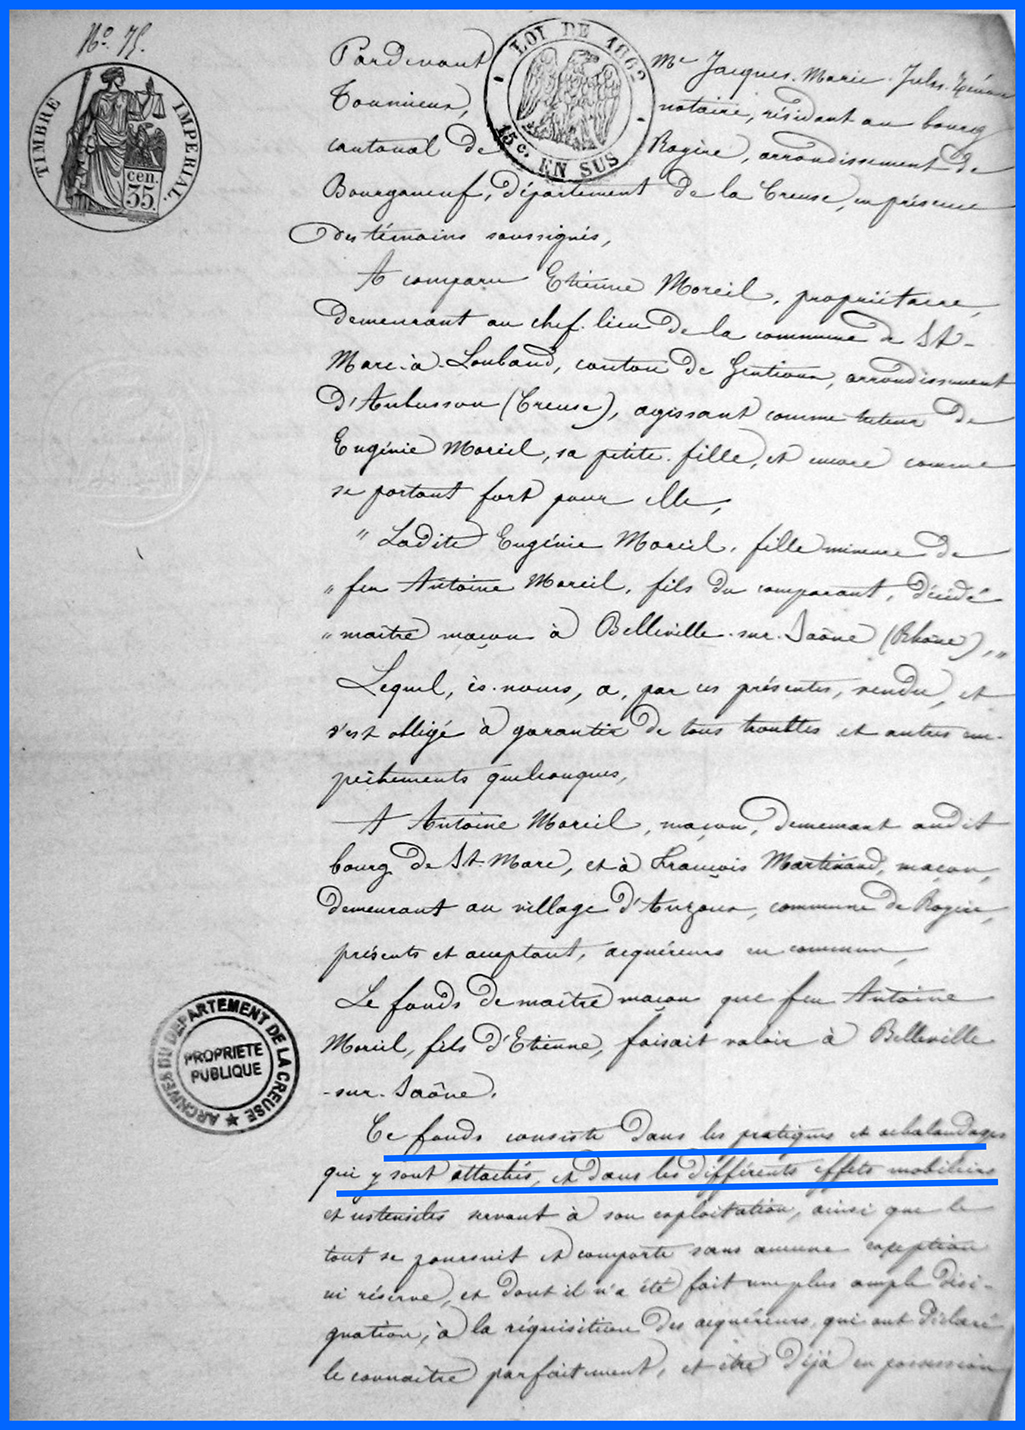 No. 75.
TIMBRE IMPERIAL.
35 cen.
LOI DE 1862
15 c. EN SUS
Pardevant Me Jacques-Marie-Jules
notaire, résidant au bourg
cantonal de Royère, arrondissement de
Bourganeuf, département de la Creuse, en présence
des témoins soussignés,
A comparu Etienne Moreil, propriétaire,
demeurant au chef-lieu de la commune de St-
Marc-à-Loubaud, canton de Gentioux, arrondissement
d'Aubusson (Creuse), agissant comme tuteur de
Eugénie Moreil, sa petite-fille, et encore comme
se portant fort pour elle,
" Ladite Eugénie Moreil, fille mineure de
" feu Antoine Moreil, fils du comparant, décédé
" maître maçon à Belleville-sur-Saône (Rhône), "
Lequel, ès-noms, a, par ces présentes, vendu, et
s'est obligé à garantir de tous troubles et autres em-
pêchements quelconques,
A Antoine Moreil, maçon, demeurant audit
bourg de St-Marc, et à François Martinaud, maçon,
demeurant au village d'Auzoux, commune de Royère,
présents et acceptant, acquéreurs en commun,
Le fonds de maître maçon que feu Antoine
Moreil, fils d'Etienne, faisait valoir à Belleville
-sur-Saône.
ARCHIVES DU DEPARTEMENT DE LA CREUSE
PROPRIETE
PUBLIQUE
Ce fonds consiste dans les pratiques et achalandages
qui y sont attachés, et dans les différents effets mobiliers
et ustensiles servant à son exploitation, ainsi que le
tout se poursuit et comporte sans aucune exception
ni réserve, et dont il n'a été fait une plus ample dési-
gnation, à la réquisition des acquéreurs, qui ont déclaré
le connaître parfaitement, et être déjà en possession